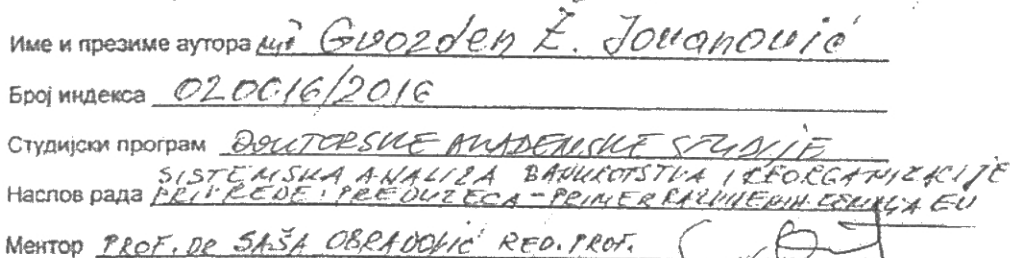 Име и презиме аутора мр Gvozden Ž. Jovanović
Број индекса
Студијски програм DOKTORSKE AKADEMSKE STUDIJE
SISTEMSKA ANALIZA BANKROTSTVA I REORGANIZACIJE
Наслов рада PRIVREDE I PREDUZEĆA - PRIMER RAZVIJENIH ZEMALJA EU
Ментор PROF. DR SAŠA OBRADOVIĆ RED. PROF.